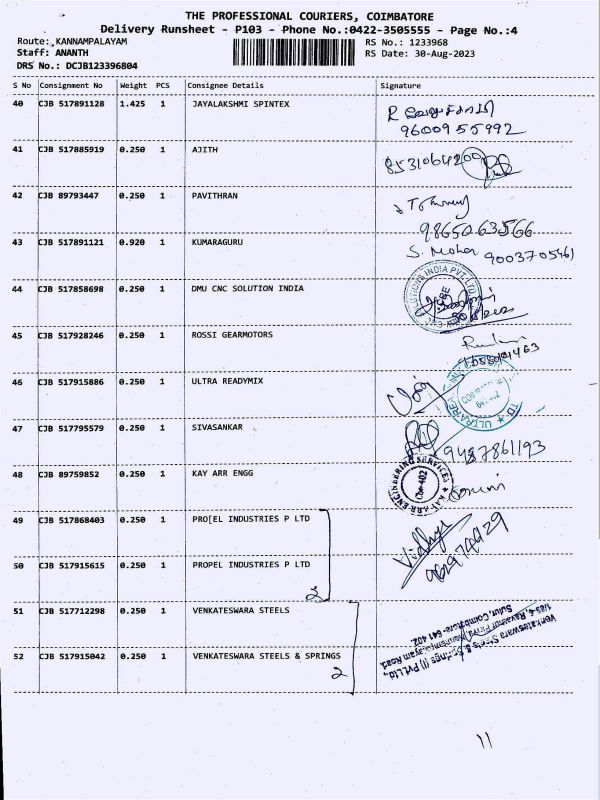 THE PROFESSIONAL COURIERS, COIMBATORE
Delivery Runsheet - P103 - Phone No.:0422-3505555 - Page No.:4
Route: KANNAMPALAYAM RS No.: 1233968
Staff: ANANTH RS Date: 30-Aug-2023
DRS No.: DCJB123396804
S No Consignment No Weight PCS Consignee Details Signature
40 CJB 517891128 1.425 1 JAYALAKSHMI SPINTEX
9600955992
41 CJB 517885919 0.250 1 AJITH 8531064200
42 CJB 89793447 0.250 1 PAVITHRAN
9865063566
43 CJB 517891121 0.920 1 KUMARAGURU S. Mohan 9003705461
44 CJB 517858698 0.250 1 DMU CNC SOLUTION INDIA
45 CJB 517928246 0.250 1 ROSSI GEARMOTORS
46 CJB 517915886 0.250 1 ULTRA READYMIX
47 CJB 517795579 0.250 1 SIVASANKAR 9487861193
48 CJB 89759852 0.250 1 KAY ARR ENGG KAY ARR ENGINEERING SERVICES
49 CJB 517868403 0.250 1 PRO[EL INDUSTRIES P LTD Vidhya
50 CJB 517915615 0.250 1 PROPEL INDUSTRIES P LTD
2
51 CJB 517712298 0.250 1 VENKATESWARA STEELS
52 CJB 517915042 0.250 1 VENKATESWARA STEELS & SPRINGS
2
Venkateswara Steels & Springs (I) Pvt Ltd.,
Sulur, Coimbatore- 641 402
11